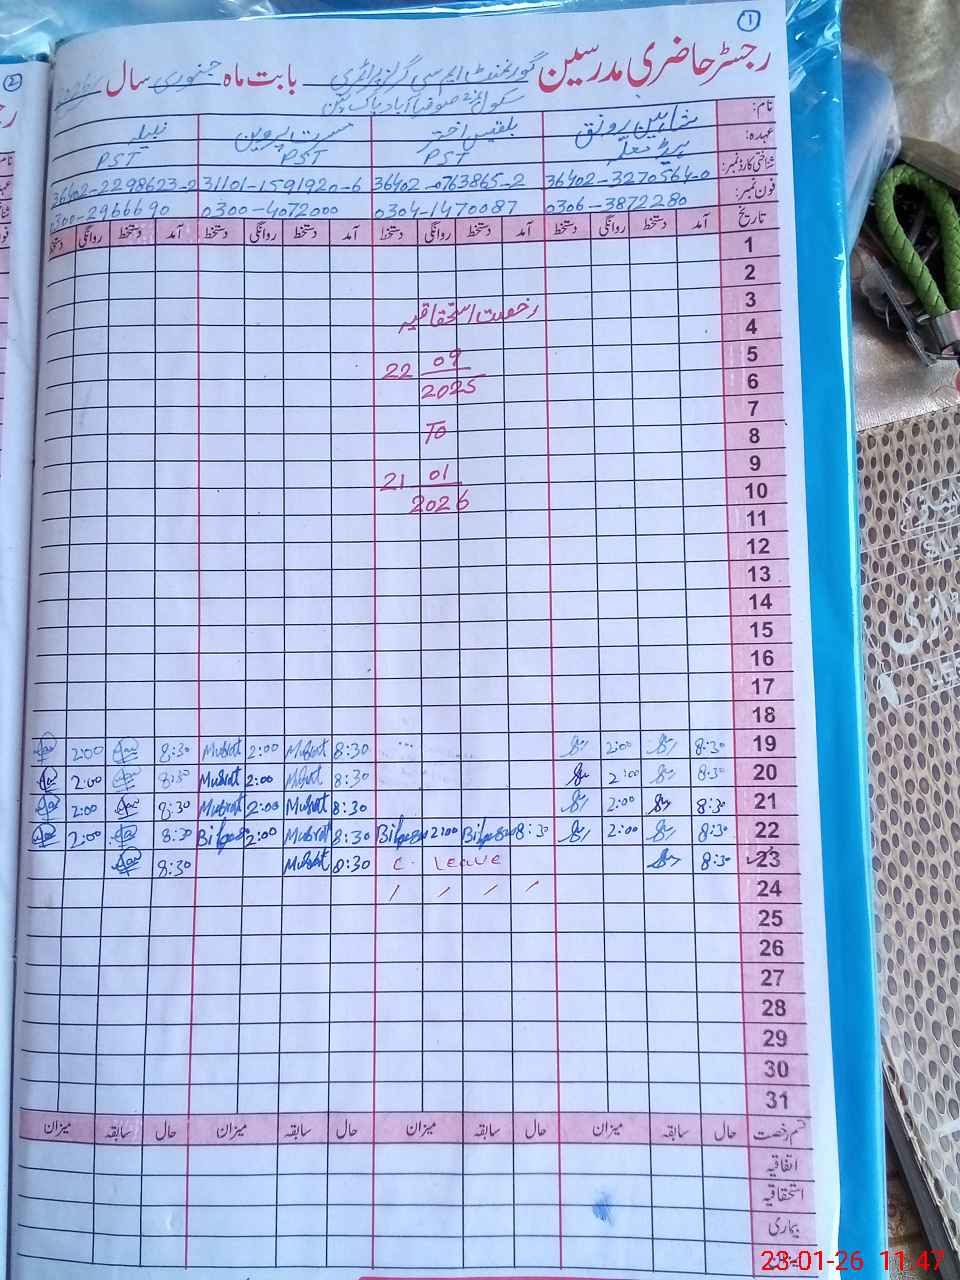 ①
رجسٹر حاضری مدرسین گورنمنٹ ایم سی گرلز پرائمری بابت ماہ جنوری سال
سکول صوفیا آباد پاک پتن
نام: شاہین رونق بلقیس اختر مسرت پروین نبیلہ
عہدہ: ہیڈ معلمہ PST PST PST
شناختی کارڈ نمبر: 36402-3270564-0 36402-0763865-2 31101-1591920-6 36402-2298623-2
فون نمبر: 0306-3872280 0304-1470087 0300-4072000 0300-2966690
تاریخ آمد دستخط روانگی دستخط آمد دستخط روانگی دستخط آمد دستخط روانگی دستخط آمد دستخط روانگی دستخط
1
2
3 رخصت استحقاقیہ
4
5 22 09
6 2025
7
8 To
9 21 01
10 2026
11
12
13
14
15
16
17
18
19 8:30 2:00 8:30 Musrat 2:00 Musrat 8:30 2:00
20 8:30 2:00 8:30 Musrat 2:00 Musrat 8:30 2:00
21 8:30 2:00 8:30 Musrat 2:00 Musrat 8:30 2:00
22 8:30 2:00 8:30 2:00 8:30 Musrat 2:00 8:30 2:00
23 8:30 C. Leave 8:30 Musrat 8:30
24
25
26
27
28
29
30
31
قسم رخصت حال سابقہ میزان حال سابقہ میزان حال سابقہ میزان حال سابقہ میزان
اتفاقیہ
استحقاقیہ
بیماری
23-01-26 11:47